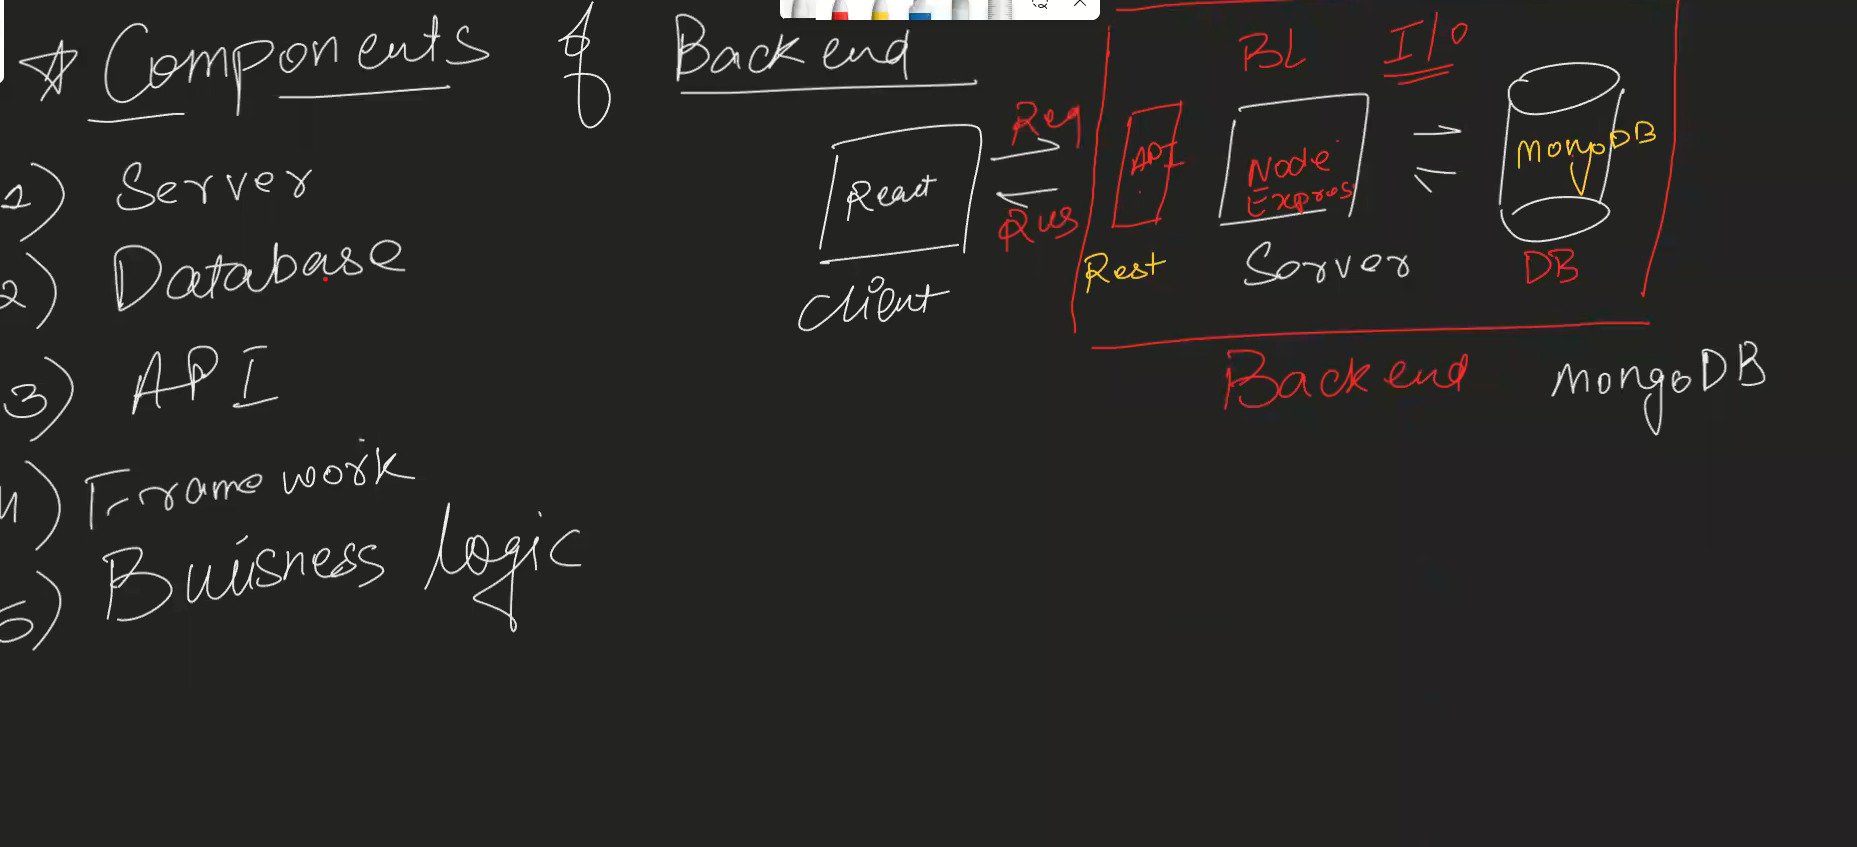 Components of Backend
1) Server
2) Database
3) API
4) Framework
5) Buiisness logic
React
Client
Req
Res
API
Rest
BL
I/O
Node
Express
Server
MongoDB
DB
Backend
MongoDB